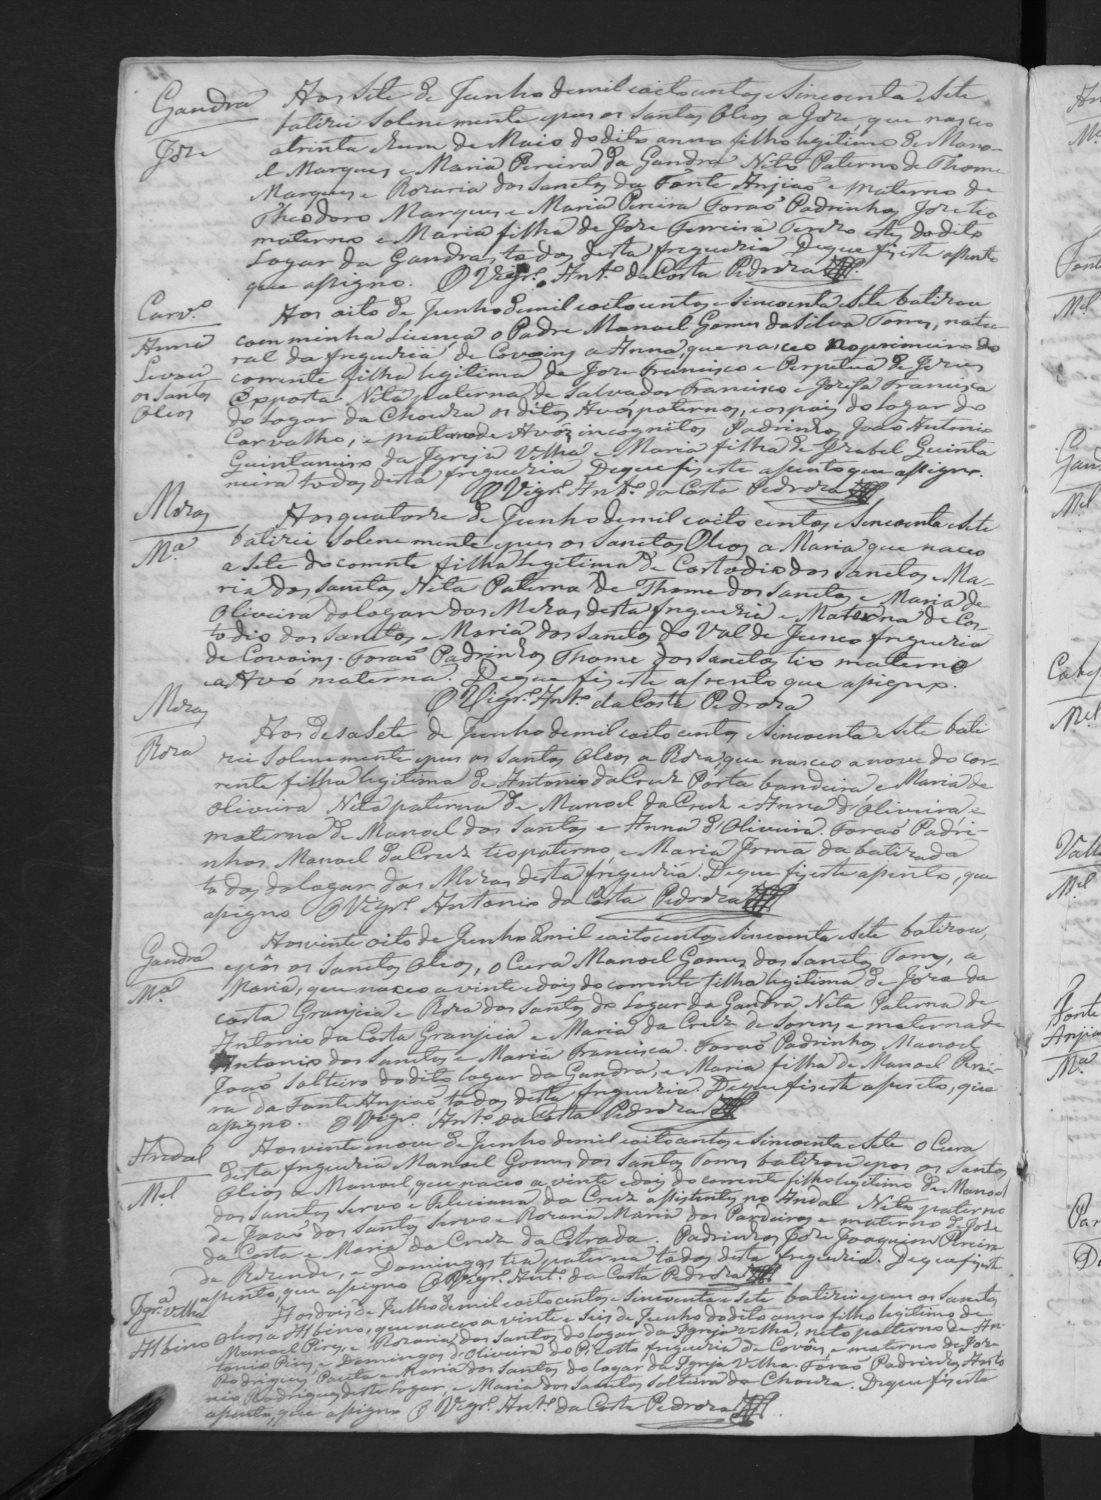 Gandra
Joze
Aos sete de Junho de mil oito centos e sincoenta e sete
batizei solenemente e pus os santos Oleos a Joze, que nasceo
a trinta e hum de Maio do dito anno filho legitimo de Mano-
el Marques e Maria Pereira da Gandra Neto Paterno de Thome
Marques e Rozaria dos Sanctos da Fonte Anjiaõ e materno de
Theodoro Marques e Maria Pereira Foraõ Padrinhos Joze tio
materno e Maria filha de Joze Ferreira este do dito
Logar da Gandra todos desta freguezia De que fis este assento
que assigno. O Vigrº. Antº. da Costa Pedroza
Carvº.
Anna
Levou
os Santos
Oleos
Aos oito de Junho de mil oito centos e sincoenta e sete batizou
com minha Licença o Padre Manoel Gomes da Silva Torres, natu-
ral da freguezia de Covoins a Anna, que nasceo no primeiro do
corrente filha legitima de Joze Francisco e Perpetua de Jezus
Exposta Neta paterna de Salvador Francisco e Jozefa Francisca
do Logar da Chouza os ditos Avós paternos, e os pais do Logar do
Carvalho, e materna de Avós incognitos Padrinhos Joaõ Antonio
Quintaneiro da Igreja Velha e Maria filha de Izabel Quinta
neira todos desta freguezia De que fis este assento que assigno.
O Vigrº. Antº. da Costa Pedroza
Meras
Mª.
Aos quatorze de Junho de mil oito centos e sincoenta e sete
batizei solenemente e pus os Sanctos Oleos a Maria que nasceo
a sete do corrente filha legitima de Custodio dos Sanctos e Ma-
ria dos Sanctos, Neta Paterna de Thome dos Sanctos e Maria de
Oliveira do Logar das Meras desta freguezia e Materna de Cus-
todio dos Sanctos e Maria dos Sanctos do Val de Junco freguezia
de Covoins. Foraõ Padrinhos Thome dos Sanctos tio materno
e a Avó materna. De que fis este assento que assigno.
O Vigrº. Antº. da Costa Pedroza
Meras
Roza
Aos desasete de Junho de mil oito centos e sincoenta e sete bati
zei solenemente e pus os Santos Oleos a Roza, que nasceo a nove do cor-
rente filha legitima de Antonio da Cruz Porta bandeira e Maria de
Oliveira Neta paterna de Manoel da Cruz e Anna d'Oliveira, e
materna de Manoel dos Santos e Anna d'Oliveira. Foraõ Padri-
nhos Manoel da Cruz tio paterno, e Maria Irmã da batizada
todos do Logar das Meras desta freguezia. De que fis este assento, que
assigno O Vigrº. Antonio da Costa Pedroza
Gandra
Mª.
Aos vinte oito de Junho de mil oito centos e sincoenta e sete batizou,
e pôs os Sanctos Oleos, o Cura Manoel Gomes dos Sanctos Torres, a
Maria, que nasceo a vinte e dois do corrente filha legitima de Joze da
Costa Granjeia e Roza dos Santos do Logar da Gandra Neta Paterna de
Antonio da Costa Granjeia e Maria da Cruz de e materna de
Antonio dos Sanctos e Maria Francisca. Foraõ Padrinhos Manoel
Joaõ Solteiro do dito logar da Gandra, e Maria filha de Manoel Perei-
ra da Fonte Anjiaõ todos desta freguezia. De que fis este assento, que
assigno. O Vigrº. Antº. da Costa Pedroza
Andal
Mel
Aos vinte e nove de Junho de mil oito centos e sincoenta e sete o Cura
desta freguezia Manoel Gomes dos Santos Torres batizou e pos os Santos
Oleos a Manoel, que nasceo a vinte e dois do corrente filho legitimo de Manoel
dos Sanctos Servo e Feliciana da Cruz assistentes no Andal Neto paterno
de Joaõ dos Santos Servo e Rozaria Maria dos Pardeiros e materno de Joze
da Costa e Maria da Cruz da Estrada. Padrinhos Joze Joaquim Pereira
da Rezende, e Domingas tia paterna todos desta freguezia. De que fis este
assento, que assigno O Vigrº. Antº. da Costa Pedroza
Igrª. velha
Albino
Aos dois de Julho de mil oito centos e sincoenta e sete batizei e pus os Sanctos
Oleos a Albino, que nasceo a vinte e seis de Junho do dito anno filho legitimo de
Manoel Pires, e Rozaria dos Santos do logar da Igreja velha, neto paterno de An-
tonio Pires e Domingas d'Oliveira do freguezia de Covões e materno de Joze
Rodrigues e Maria dos Santos do logar da Igreja Velha. Foraõ Padrinhos Anto
nio Rodrigues deste Logar, e Maria dos Santos solteira da Chouza. De que fis este
assento, que assigno O Vigrº. Antº. da Costa Pedroza